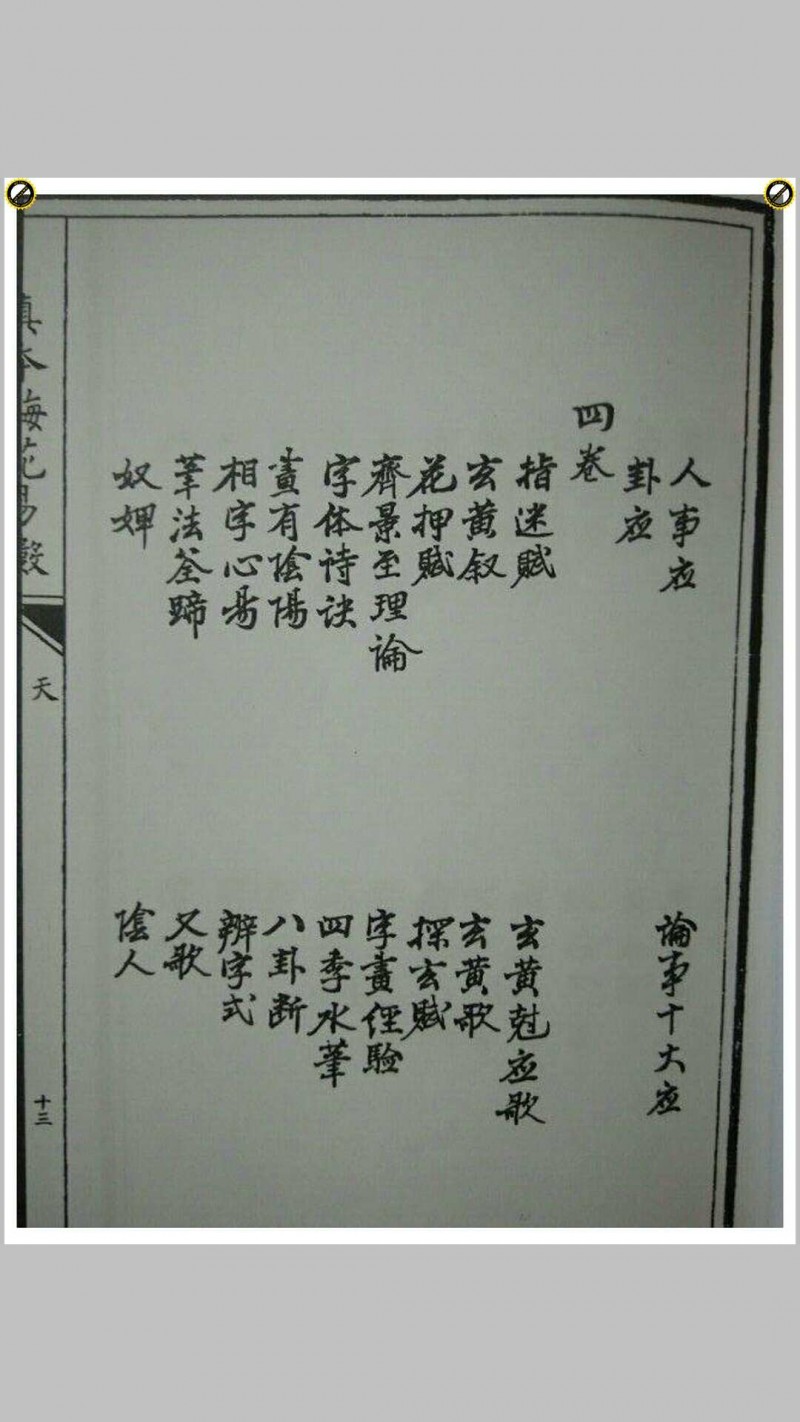 人事应
論事十大应
卦应
四卷
指迷賦
玄黄尅应歌
玄黄叙
玄黄歌
花押賦
探玄賦
齊景至理論
字畫经驗
字体诗诀
四季水筆
畫有陰陽
八卦断
相字心易
辨字式
筆法筌蹄
又歌
奴婢
陰人
真本梅花易數
天
十三